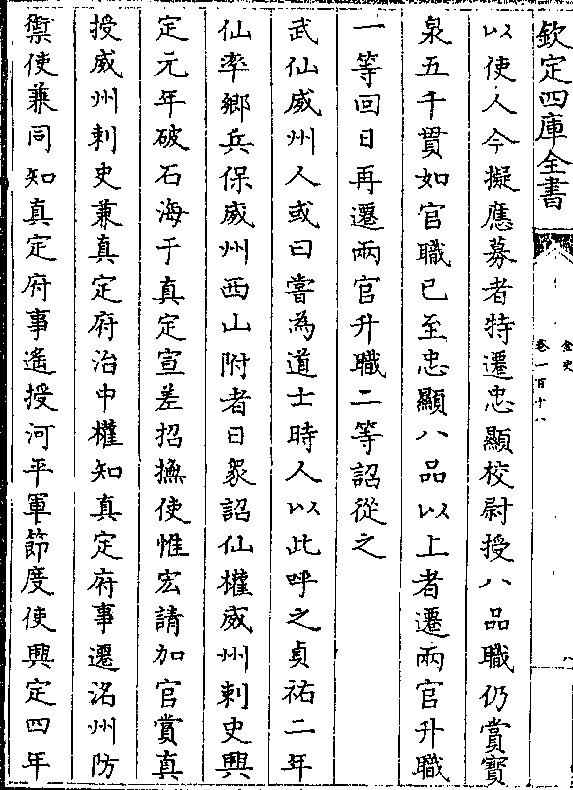 欽定四庫全書
金史
卷一百十八
以使人今擬應募者特遷忠顯校尉授八品職仍賞寳
泉五千貫如官職已至忠顯八品以上者遷兩官升職
一等回日再遷兩官升職二等詔從之
武仙威州人或曰嘗為道士時人以此呼之貞祐二年
仙率鄉兵保威州西山附者日衆詔仙權威州刺史興
定元年破石海于真定宣差招撫使惟宏請加官賞真
授威州刺史兼真定府治中權知真定府事遷洺州防
禦使兼同知真定府事遙授河平軍節度使興定四年